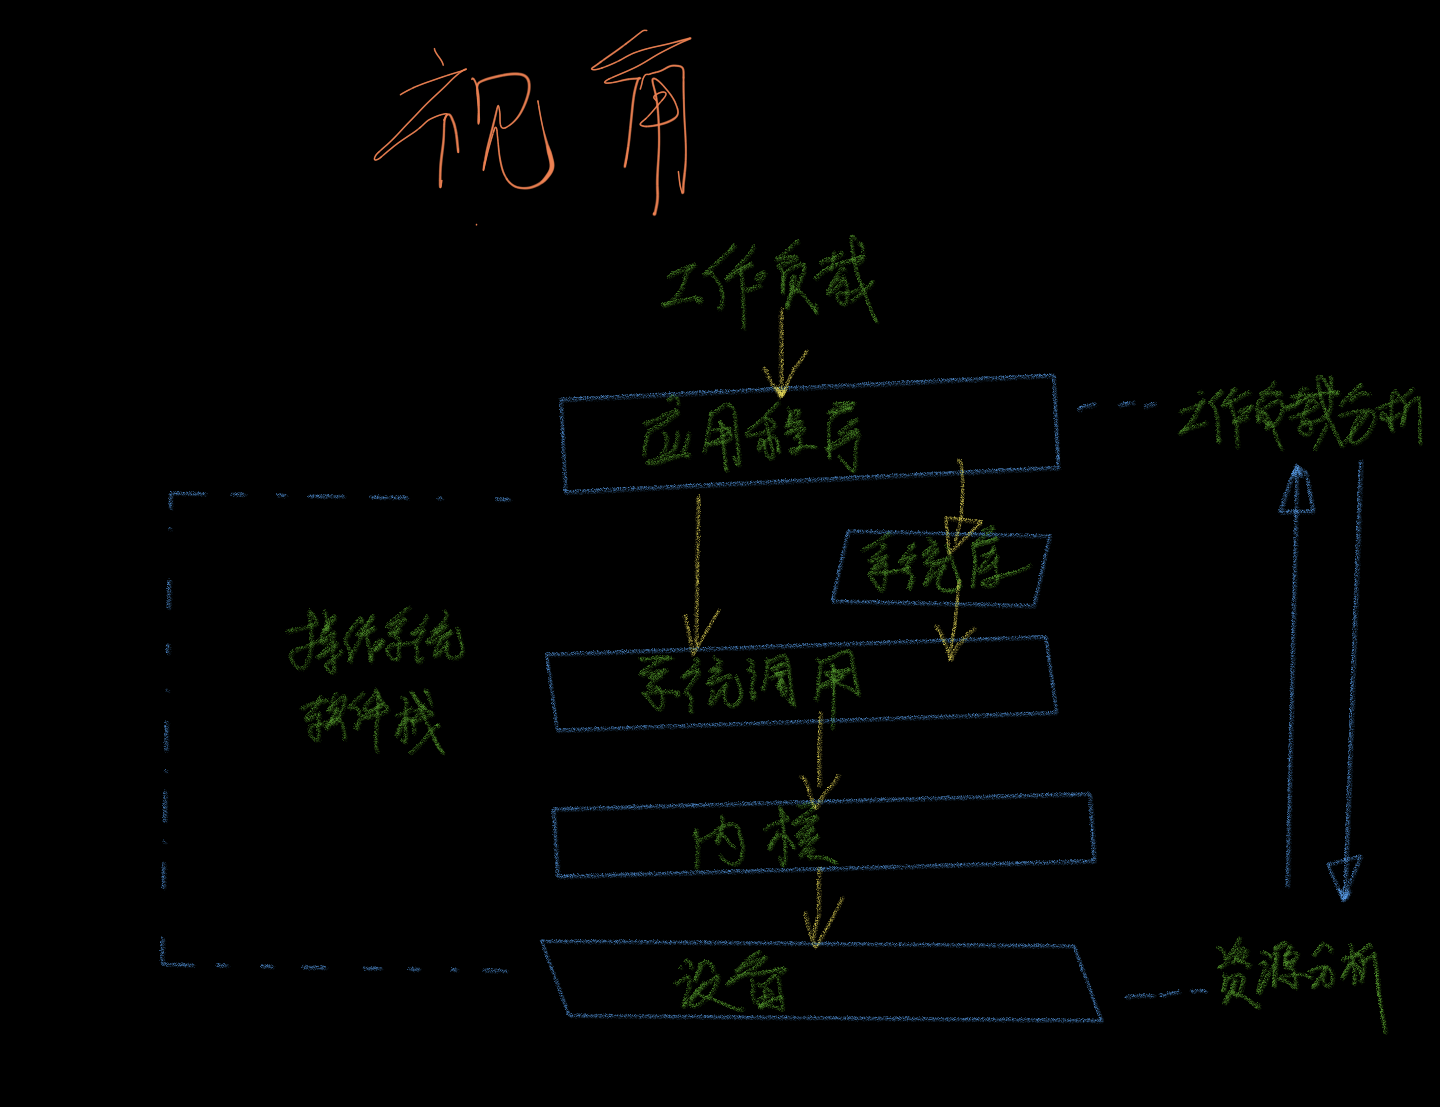 视角
工作负载
应用程序
工作负载分析
系统库
操作系统
软件栈
系统调用
内核
设备
资源分析